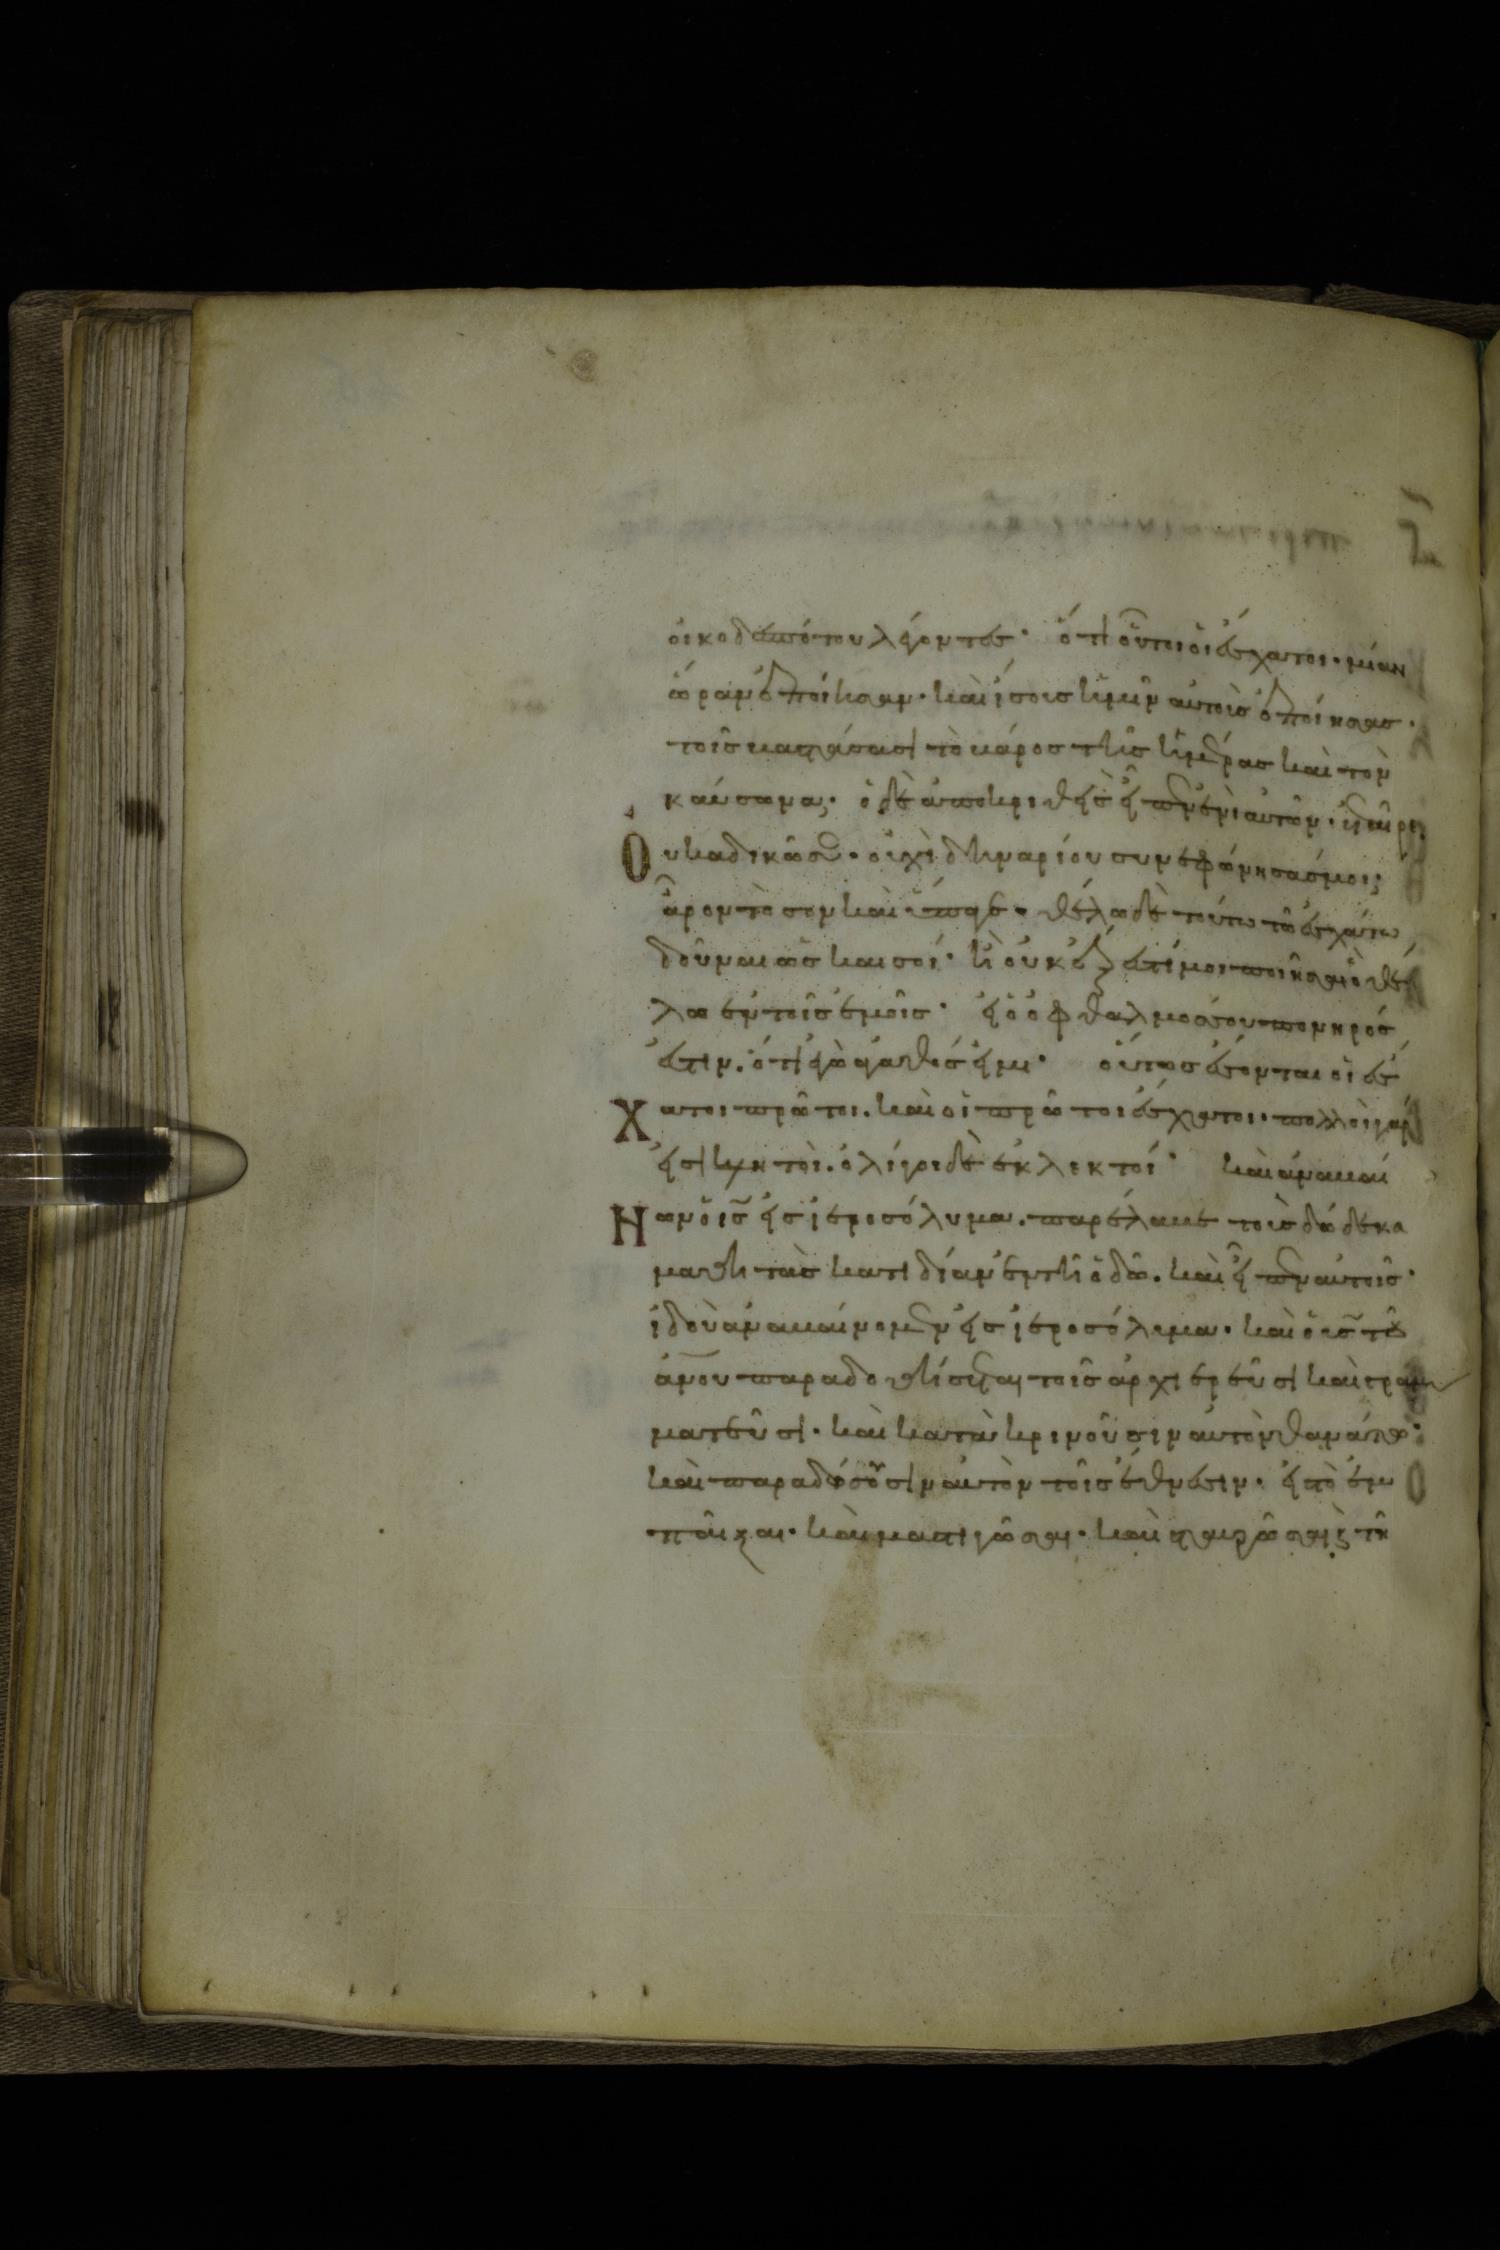 οικοδεσπότου λέγοντες· ὅτι οὗτοι οἱ ἔσχατοι· μίαν
ὥραν ἐποίησαν· καὶ ἴσους ἡμῖν αὐτοὺς ἐποίησας·
τοῖς βαστάσασι τὸ βάρος τῆς ἡμέρας καὶ τὸν
καύσωνα· ὁ δὲ ἀποκριθεὶς εἶπεν ἑνὶ αὐτῶν· ἑταῖρε
Οὐκ ἀδικῶ σε· οὐχὶ δηναρίου συνεφώνησάς μοι;
ἆρον τὸ σὸν καὶ ὕπαγε· θέλω δὲ τούτω τῶ ἐσχάτω
δοῦναι ὡς καὶ σοί· ἢ οὐκ ἔξεστί μοι ποιῆσαι ὃ θέ
λω ἐν τοῖς ἐμοῖς· εἰ ὁ ὀφθαλμός σου πονηρός
ἐστιν· ὅτι ἐγὼ ἀγαθός εἰμι· οὕτως ἔσονται οἱ ἔσ
Χατοι πρῶτοι· καὶ οἱ πρῶτοι ἔσχατοι· πολλοὶ γάρ
εἰσι κλητοὶ· ὀλίγοι δὲ ἐκλεκτοί· καὶ ἀναβαί
Νων ὁ ις εἰς ἱεροσόλυμα· παρέλαβε τοὺς δώδεκα
μαθητὰς κατιδίαν ἐν τῆ ὁδῶ· καὶ εἶπεν αὐτοῖς·
ἰδοὺ ἀναβαίνομεν εἰς ἱεροσόλυμα· καὶ ὁ υς τοῦ
ανου παραδοθήσεται τοῖς ἀρχιερεῦσι καὶ γραμ
ματεῦσι· καὶ κατακρινοῦσιν αὐτὸν θανάτω·
καὶ παραδώσουσιν αὐτὸν τοῖς ἔθνεσιν· εἰς τὸ ἐμ
παῖξαι· καὶ μαστιγῶσαι· καὶ σταυρῶσαι· καὶ τῆ